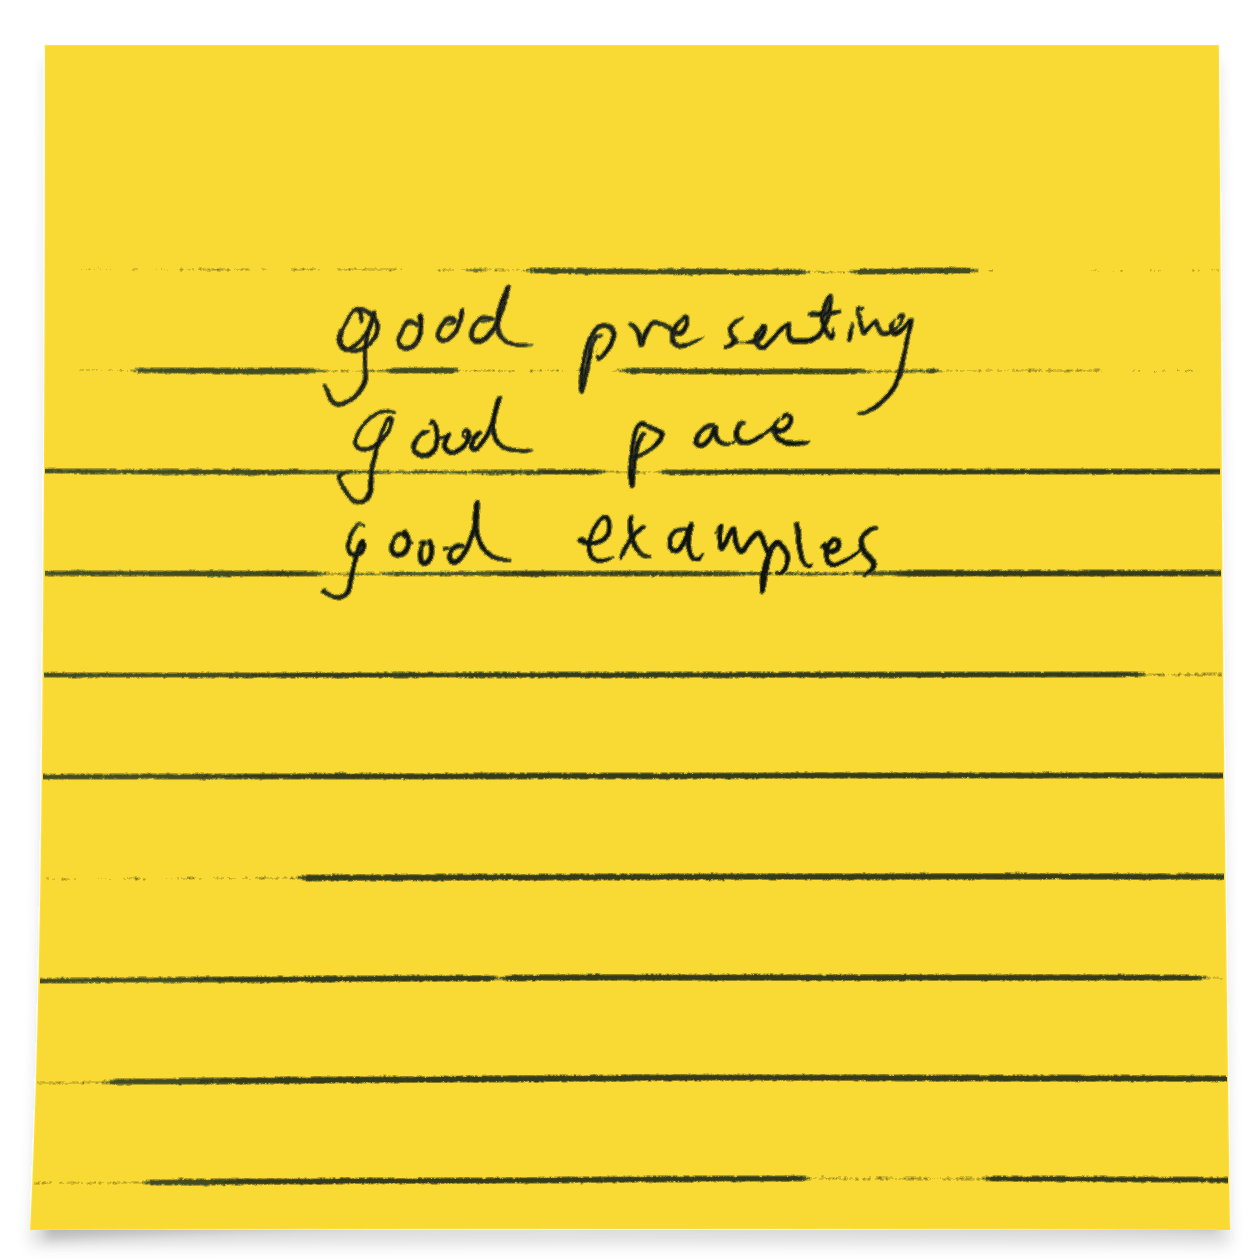 good presenting
good pace
good examples